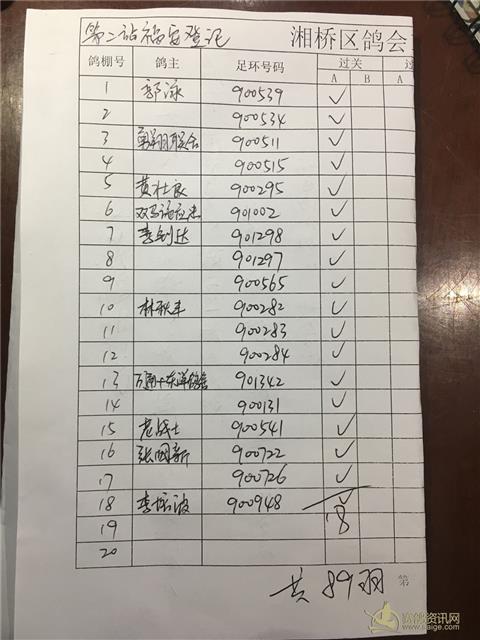 第二站福安登记 湘桥区鸽会
鸽棚号 鸽主 足环号码 过关 过
A B A
1 郭泳 900539 ✓
2 900534 ✓
3 900511 ✓
4 900515 ✓
5 黄壮良 900295 ✓
6 901002 ✓
7 李创达 901298 ✓
8 901297 ✓
9 900565 ✓
10 林秋丰 900282 ✓
11 900283 ✓
12 900284 ✓
13 901342 ✓
14 900131 ✓
15 老战士 900541 ✓
16 张国新 900722 ✓
17 900726 ✓
18 李振波 900948 ✓
19 18
20
共 89羽 第
赛鸽资讯网
www.saige.com